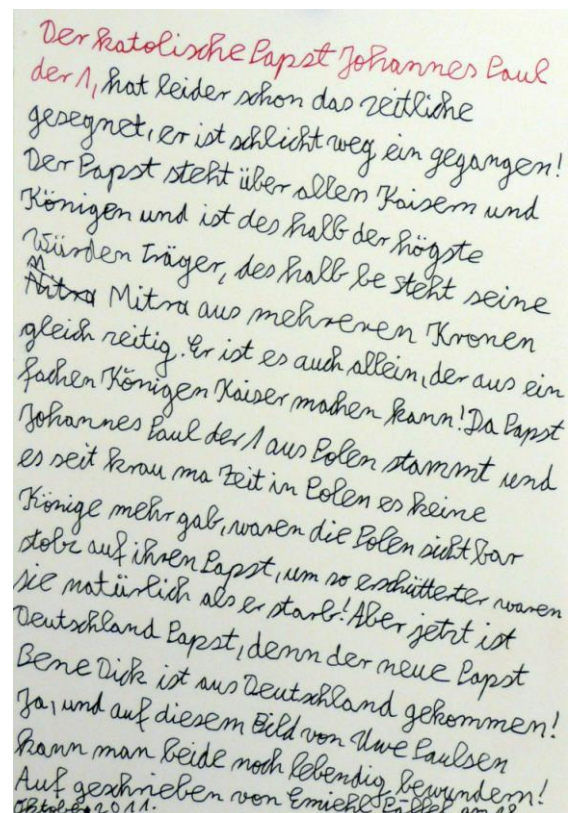 Der katolische Papst Johannes Paul
der 1, hat leider schon das zeitliche
gesegnet, er ist schlicht weg ein gegangen!
Der Papst steht über allen Kaisern und
Königen und ist des halb der högste
Würden Träger, des halb be steht seine
Mitra Mitra aus mehreren Kronen
gleich zeitig. Er ist es auch allein, der aus ein
fachen Königen Kaiser machen kann! Da Papst
Johannes Paul der 1 aus Polen stammt und
es seit krau ma Zeit in Polen es keine
Könige mehr gab, waren die Polen sicht bar
stolz auf ihren Papst, um so erschütterter waren
sie natürlich als er starb! Aber jetzt ist
Deutschland Papst, denn der neue Papst
Bene Dick ist aus Deutschland gekommen!
Ja, und auf diesem Bild von Uwe Paulsen
kann man beide noch lebendig bewundern!
Auf geschrieben von Emiehl am 18
Oktober 2011.